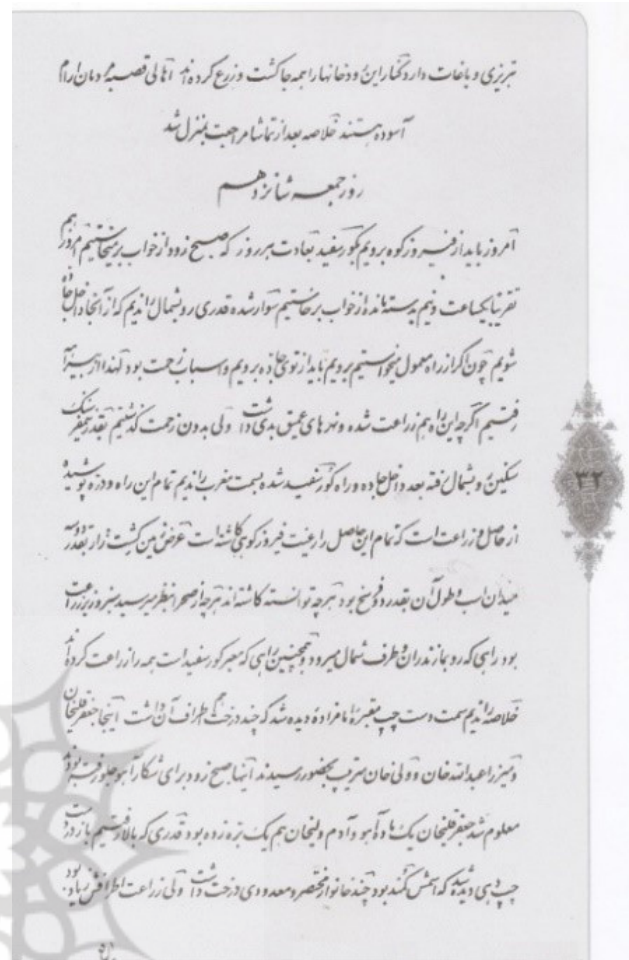 تبریزی و باغات دارد کنار این رودخانها را همه جا کشت و زرع کرده‌اند اهالی قصبه و دهان آرام
آسوده هستند خلاصه بعد از تماشا مراجعت بمنزل شد
روز جمعه شانزدهم
امروز باید از فیروزکوه برویم بگور سفید بعادت هر روز که صبح زود از خواب برمیخاستیم امروز هم
تقریبا یکساعت و نیم بدسته مانده از خواب برخاستیم سوار شده قدری رو بشمال راندیم که از آنجا داخل جاده
شویم چون اگر از راه معمول میخواستیم برویم باید از توی جاده برویم و اسباب زحمت بود لهذا از بیراهه
رفتیم اگرچه این راه هم زراعت شده و نهرهای عمیق بدی داشت ولی بدون زحمت گذشتیم بقدر نیمفرسنک
سنگین رو بشمال رفته بعد داخل جاده و راه گور سفید شده بسمت مغرب راندیم تمام این راه و دره پوشیده
از حاصل و زراعت است که تمام این حاصل را رعیت فیروزکوهی کاشته است عرض زمین کشت‌زار بقدر دو
میدان اسب و طول آن بقدر دو فرسخ بود هر چه توانسته کاشته‌اند هر چه از صحرا بنظر میرسید سبز و زیر زراعت
بود راهی که رو بمازندران و طرف شمال میرود و همچنین راهی که معبر گور سفید است همه را زراعت کرده‌اند
خلاصه راندیم سمت دست چپ مقبرهٔ امامزادهٔ دیده شد که چند درخت هم اطراف آن داشت اینجا جعفرقلیخان
و میرزا عبدالله خان و ولی خان سرتیپ بحضور رسیدند اینها صبح زود برای شکار آهو جلو رفته بودند
معلوم شد جعفرقلیخان یک ماده آهو و آدم ولیخان هم یک بره زده بود قدری که بالا رفتیم باز در دست
چپ دهی دیده شد که اسمش کمند بود چند خانوار مختصر و معدودی درخت داشت ولی زراعت اطرافش زیاد بود
۳۲